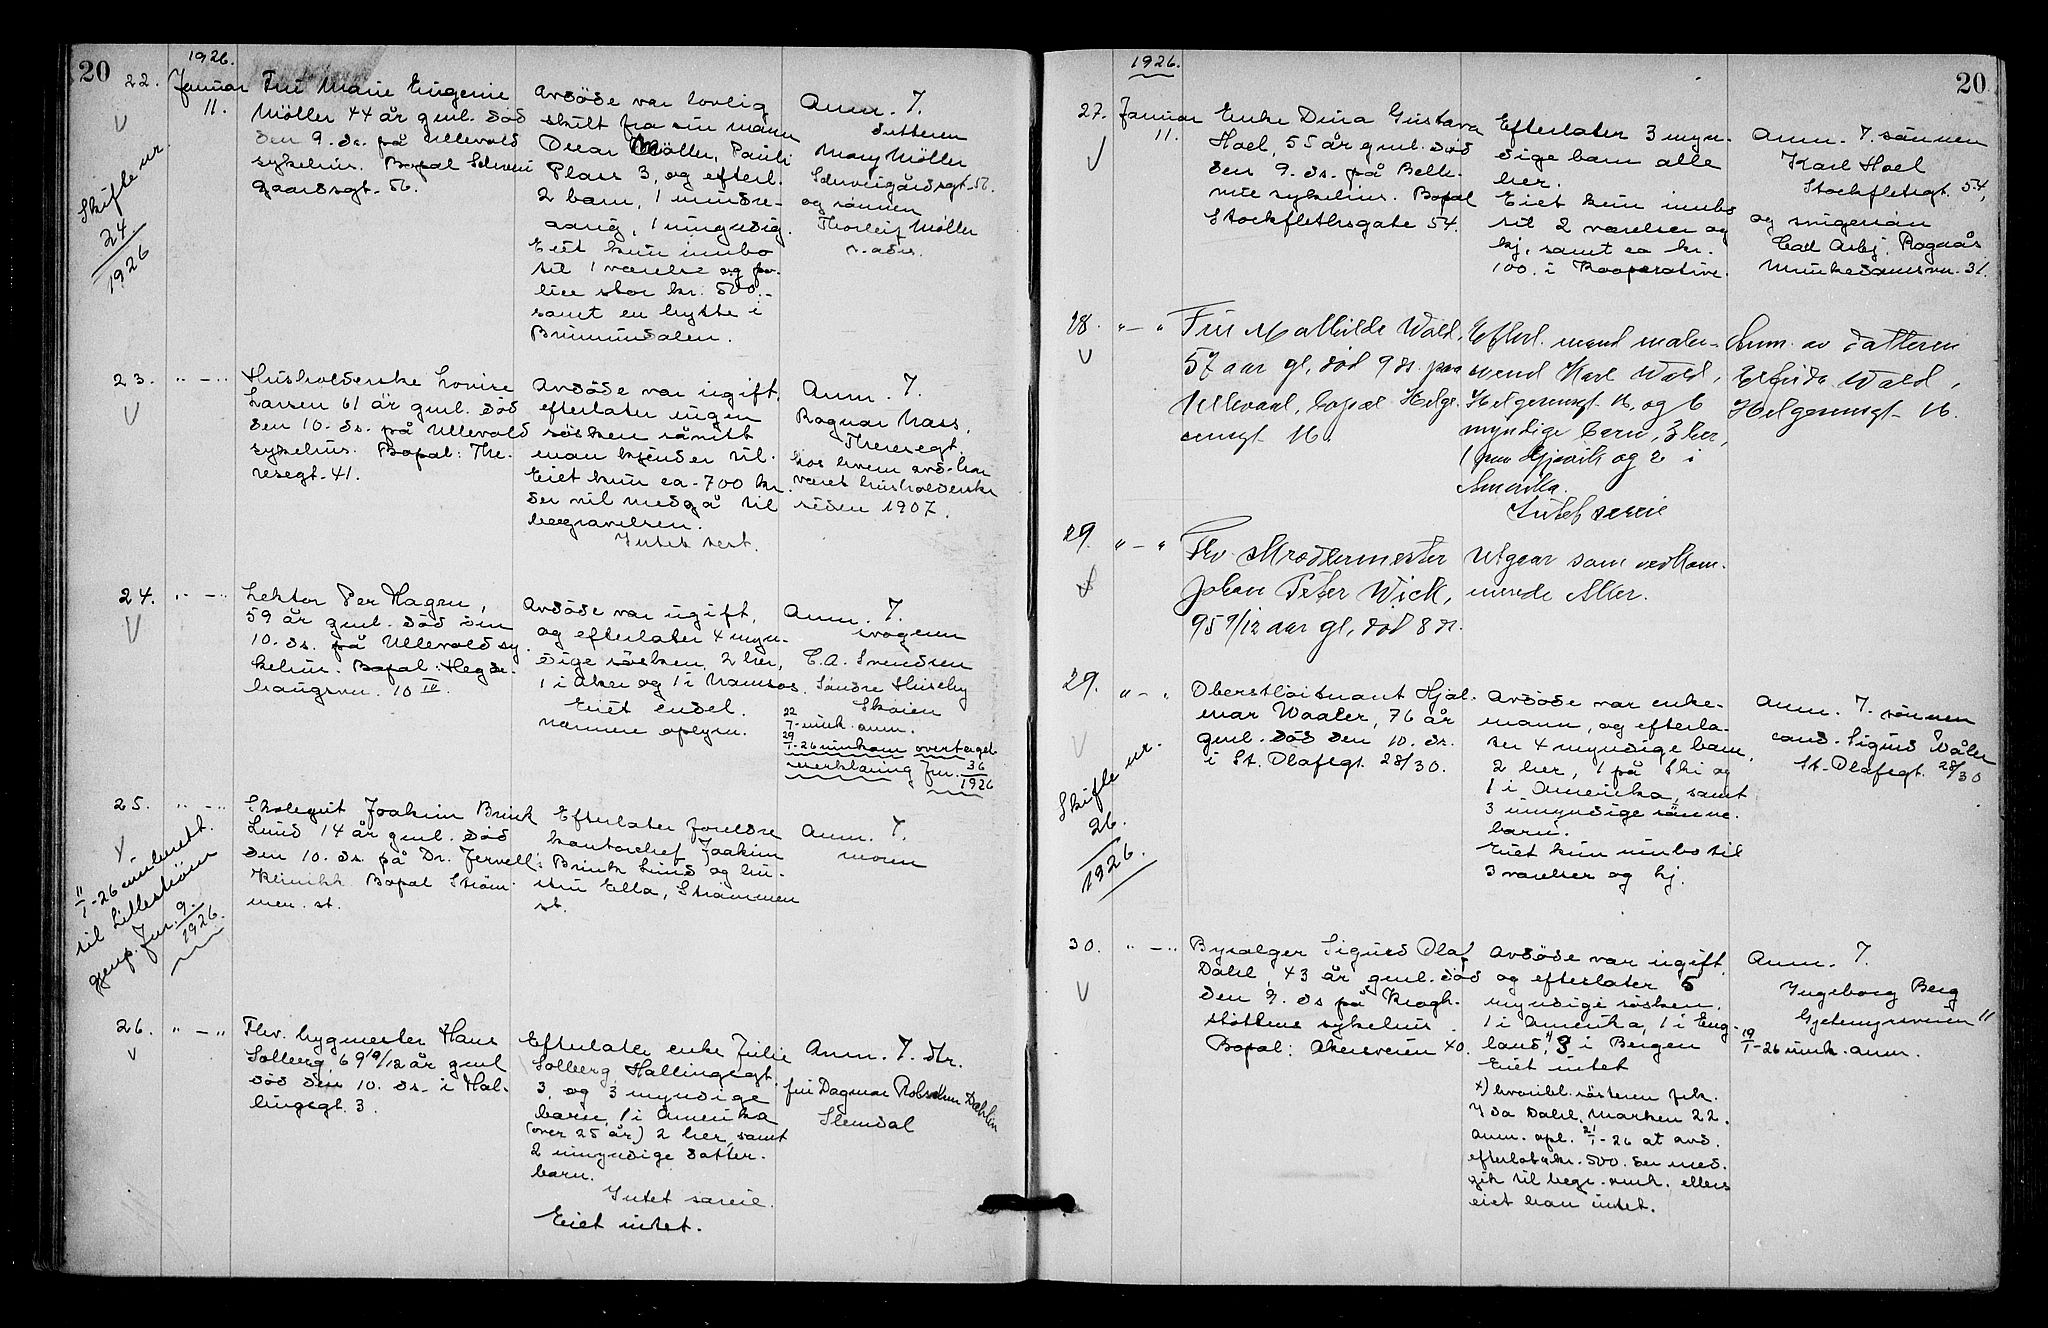 20
1926.
22.
Januar
11.
Fru Marie Eugenie
Möller 44 år gml. død
den 9. ds. på Ullevold
sykehus. Bopæl Schwei
gaardsgt. 56.
Avdøde var lovlig
skilt fra sin mann
Oscar Möller, Pauls
Plass 3, og efterl.
2 barn, 1 mindre-
aarig, 1 umyndig.
Eiet kun innbo
til 1 værelse og po-
lise stor kr. 500.-
samt en hytte i
Brumundalen.
Anm. 7.
datteren
Mary Möller
Schweigårdsgt. 56.
og sønnen
Thorleif Möller
s. adr.
Skifte nr.
24
1926
23.
" - "
Husholderske Lovise
Larsen 61 år gml. død
den 10. ds. på Ullevold
sykehus. Bopæl: The-
resegt. 41.
Avdøde var ugift,
efterlater ingen
søsken såvitt
man kjender til.
Eiet kun ca. 700 kr.
der vil medgå til
begravelsen.
Intet test.
Anm. 7.
Ragnar Nass,
Theresegt.
hos hvem avd. har
været husholderske
siden 1907.
24.
" - "
Lektor Per Hagen,
59 år gml. død den
10. ds. på Ullevold sy
kehus. Bopæl: Hegde-
haugsvn. 10 IV.
Avdøde var ugift,
og efterlater 4 myn-
dige søsken, 2 her,
1 i Aker og 1 i Namsos.
Eiet endel.
nærmere oplysn.
Anm. 7.
svogeren
C. A. Svendsen
Søndre Huseby
Skøien
22/1- innk. anm.
29/1-26 innkom overtagel-
seserklæring Jnr. 36/1926
25.
" - "
Skolegut Joakim Brink
Lund 14 år gml. død
den 10. ds. på Dr. Jervell:
Klinikk. Bopæl Strøm-
men st.
Efterlater foreldre
kontorchef Joakim
Brink Lund og hu-
stru Ella, Strømmen
st.
Anm. 7.
moren
11/1-26 innberett.
til Lillestrøm
gjenp. Jnr. 9.
1926.
26.
" - "
Fhv. bygmester Hans
Solberg, 69 9/12 år gml
død den 10. ds. i Hal-
lingsgt. 3.
Efterlater enke Julie
Solberg Hallingsgt.
3, og 3 myndige
barn, 1 i Amerika
(over 25 år) 2 her, samt
2 umyndige datter-
barn.
Intet særeie.
Eiet intet.
Anm. 7. dtr.
fru Dagmar Robsahm Dahlin
Slemdal
20
1926.
27.
Januar
11.
Enke Dina Gustava
Hoel, 55 år gml. død
den 9. ds. på Belle-
vue sykehus. Bopæl
Stockflethsgate 54.
Efterlater 3 myn-
dige barn alle
her.
Eiet kun innbo
til 2 værelser og
kj, samt ca kr.
100. i Kooperative.
Anm. 7. sønnen
Karl Hoel
Stockfletsgt. 54,
og svigersøn
Carl Asbj. Rognås
Munkedamsvn. 31.
28.
" - "
Fru Mathilde Wold,
57 aar gl, død 9 ds. paa
Ullevaal, bopæl Helge-
sensgt 16.
Efterl. mand maler-
svend Karl Wold,
Helgesensgt 16, og 6
myndige barn, 3 her,
1 paa Gjøvik og 2 i
Amerika.
Intet særeie
Anm. av datteren
Elfrida Wold,
Helgesensgt 16.
29.
" - "
Fhv Skrædermester
Johan Peter Wick,
95 9/12 aar gl, død 8 ds.
Utgaar som vedkom-
mende Aker.
29.
" - "
Oberstløitnant Hjal-
mar Waaler, 76 år
gml. død den 10. ds.
i St. Olafsgt. 28/30.
Avdøde var enke-
mann, og efterla-
ter 4 myndige barn,
2 her, 1 på Ski og
1 i Amerika, samt
3 umyndige sønne-
barn.
Eiet kun innbo til
3 værelser og kj.
Anm. 7. sønnen
cand. Sigurd Wåler
St. Olafsgt. 28/30
Skifte nr.
26.
1926.
30.
" - "
Byselger Sigurd Olaf
Dahl, 43 år gml. død
den 9. ds på Krogh-
støttens sykehus.
Bopæl: Akersveien 40.
Avdøde var ugift,
og efterlater 5
myndige søsken,
1 i Amerika, 1 i Eng-
land, x) 3 i Bergen
Eiet intet
x) hvoribl. søsteren frk.
Ida Dahl, Marken 22.
anm. opl. 21/1-26 at avd.
efterlot kr. 500. der med-
gik til begr. omk. ellers
eiet han intet.
Anm. 7.
Ingeborg Berg
Gjetemyrsveien 11
19/1-26 innk. anm.